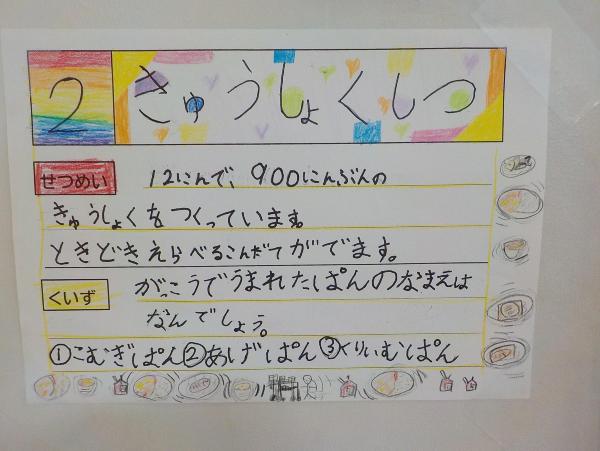 2 きゅうしょくしつ
せつめい 12にんで、900にんぶんの
きゅうしょくをつくっています。
ときどきえらべるこんだてがでます。
くいず がっこうでうまれたぱんのなまえは
なんでしょう。
①こむぎぱん②あげぱん③くりいむぱん